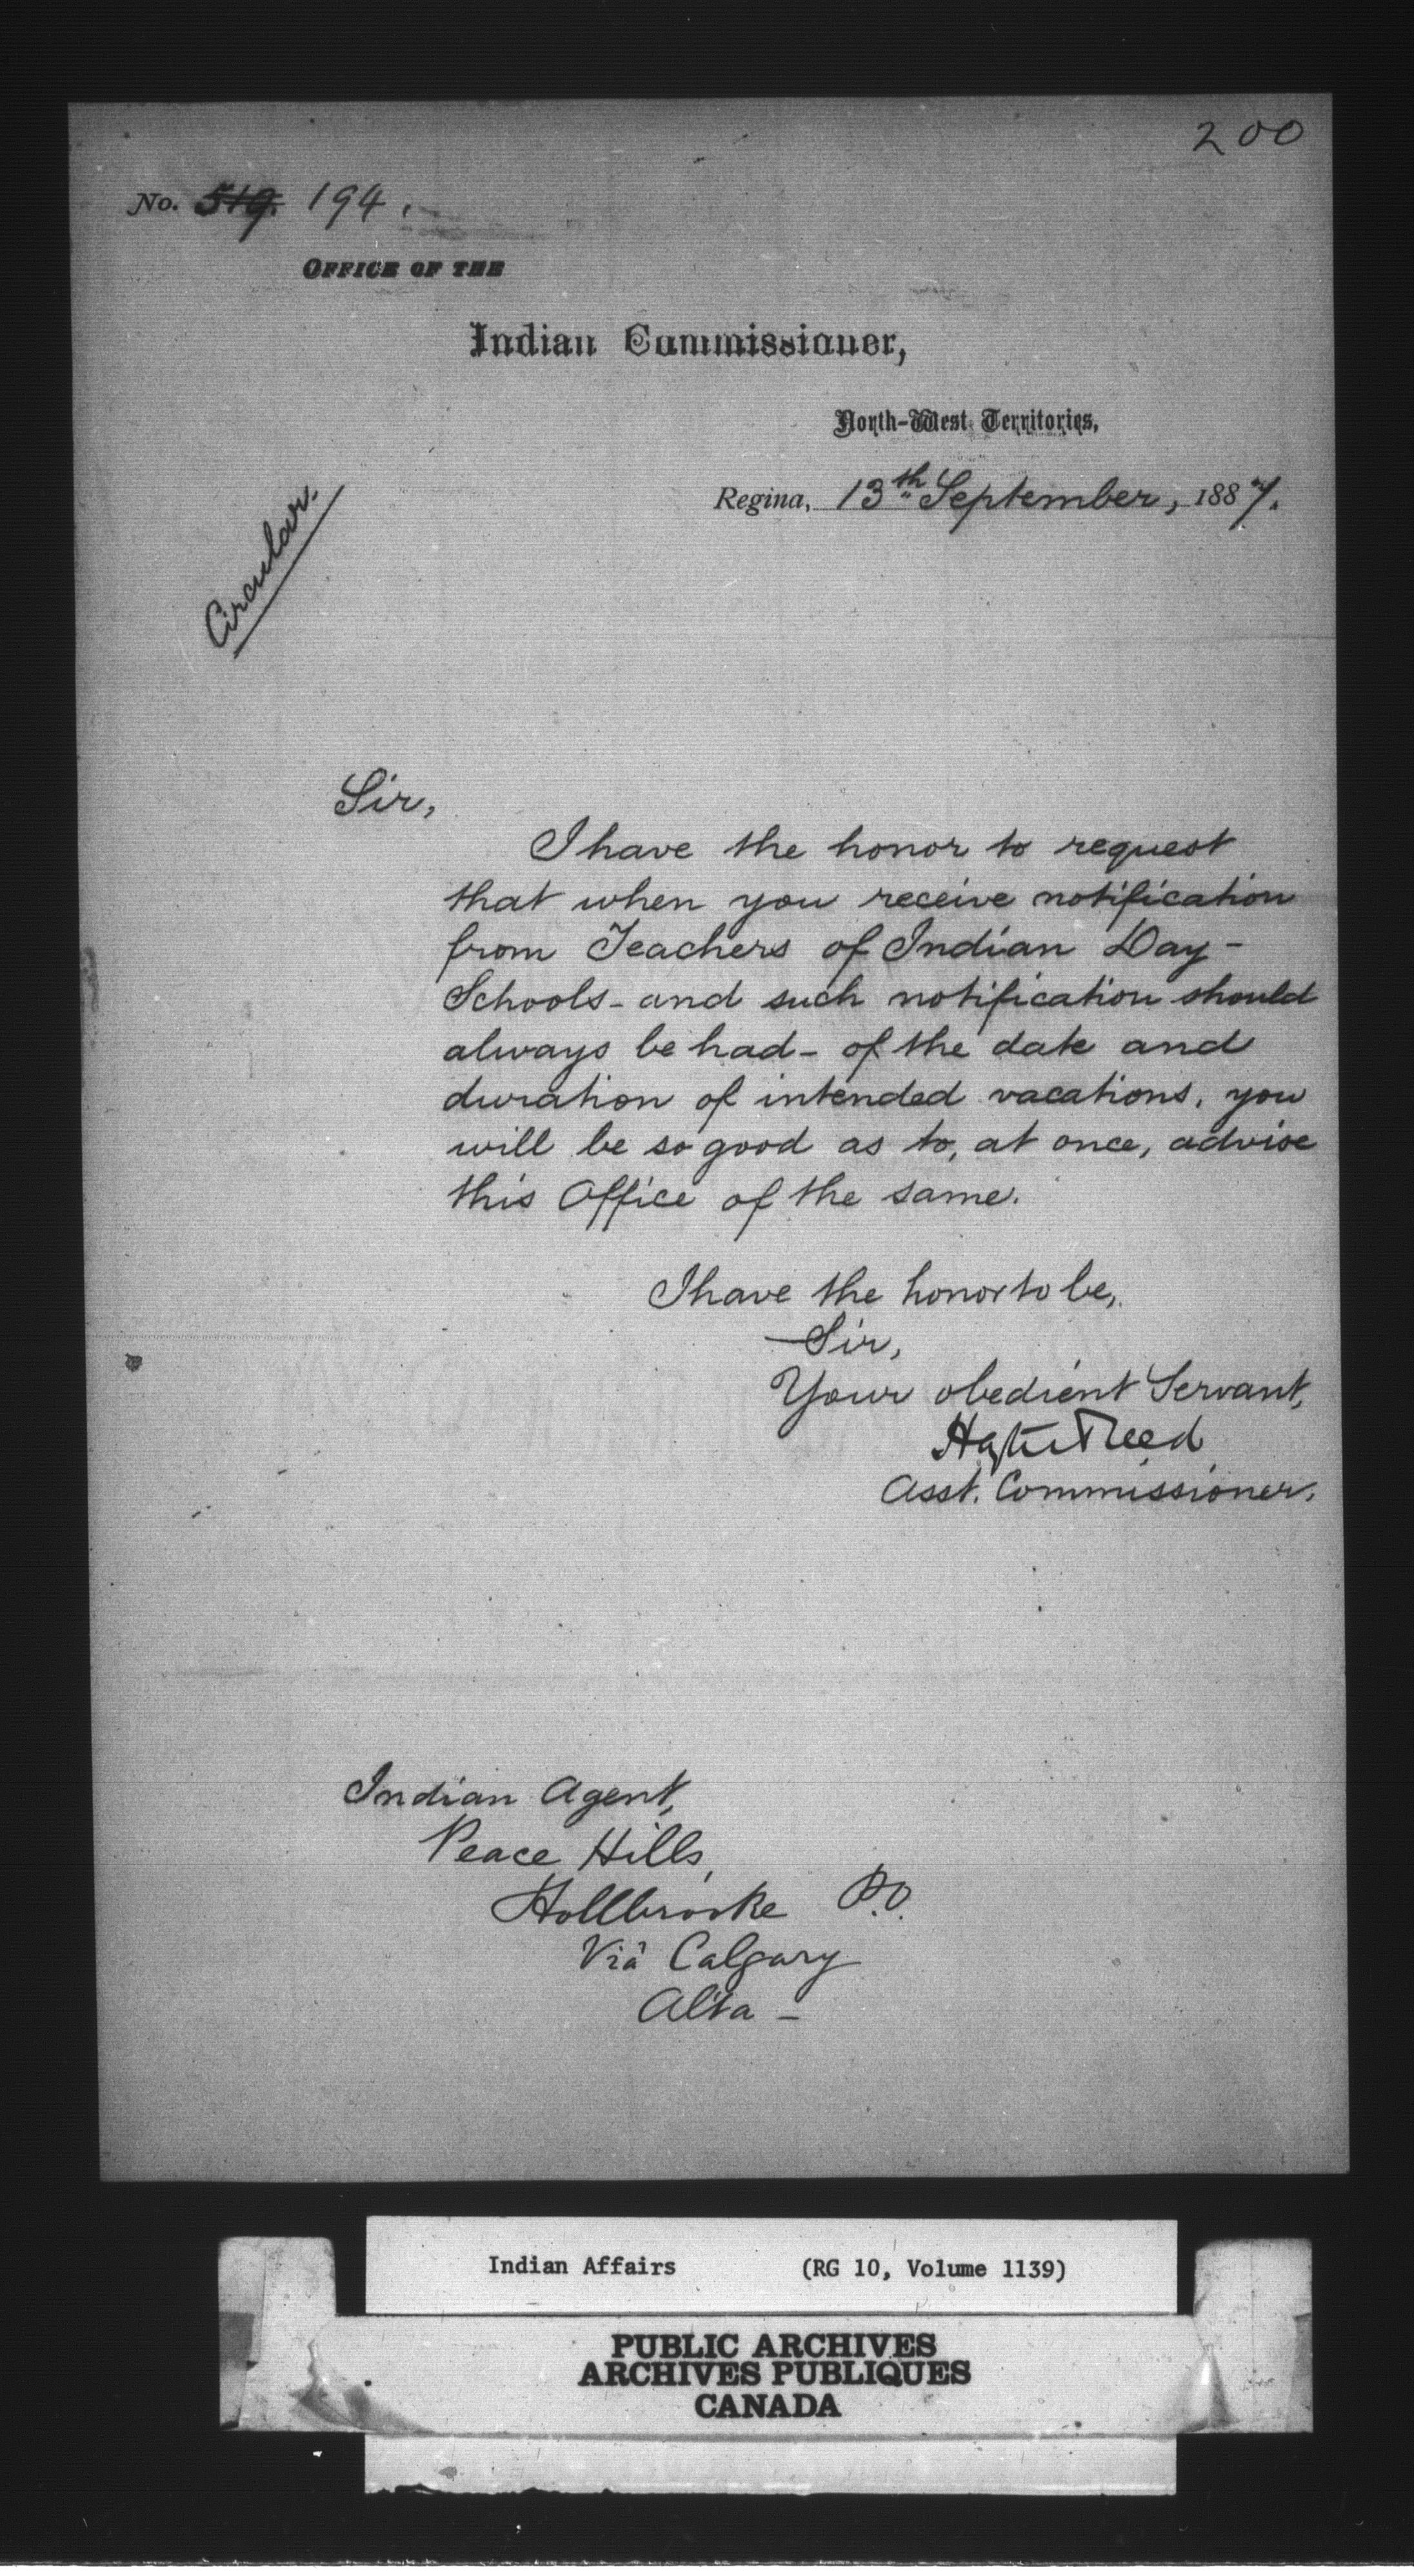 200
No. 519. 194.
OFFICE OF THE
Indian Commissioner,
North-West Territories,
Regina, 13th September, 1887.
Circular.
Sir,
I have the honor to request
that when you receive notification
from Teachers of Indian Day-
Schools - and such notification should
always be had - of the date and
duration of intended vacations, you
will be so good as to, at once, advise
this Office of the same.
I have the honor to be,
Sir,
Your obedient Servant,
Hayter Reed
Asst. Commissioner.
Indian Agent,
Peace Hills,
Hollbrooke P.O.
Viâ Calgary
Alta -
Indian Affairs (RG 10, Volume 1139)
PUBLIC ARCHIVES
ARCHIVES PUBLIQUES
CANADA